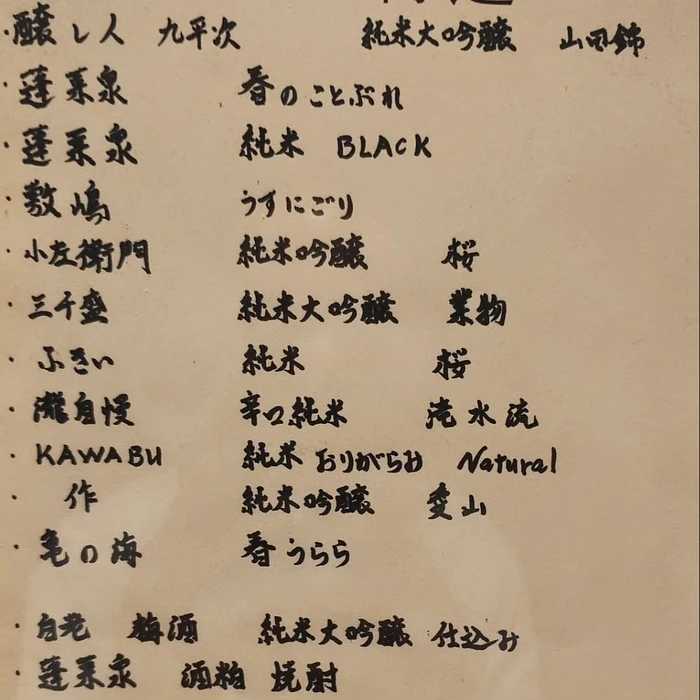 ・醸し人 九平次 純米大吟醸 山田錦
・蓬莱泉 春のことぶれ
・蓬莱泉 純米 BLACK
・敷嶋 うすにごり
・小左衛門 純米吟醸 桜
・三千盛 純米大吟醸 業物
・ふさい 純米 桜
・瀧自慢 辛口純米 滝水流
・KAWABU 純米 おりがらみ Natural
・作 純米吟醸 愛山
・亀の海 春うらら
・白老 梅酒 純米大吟醸 仕込み
・蓬莱泉 酒粕 焼酎